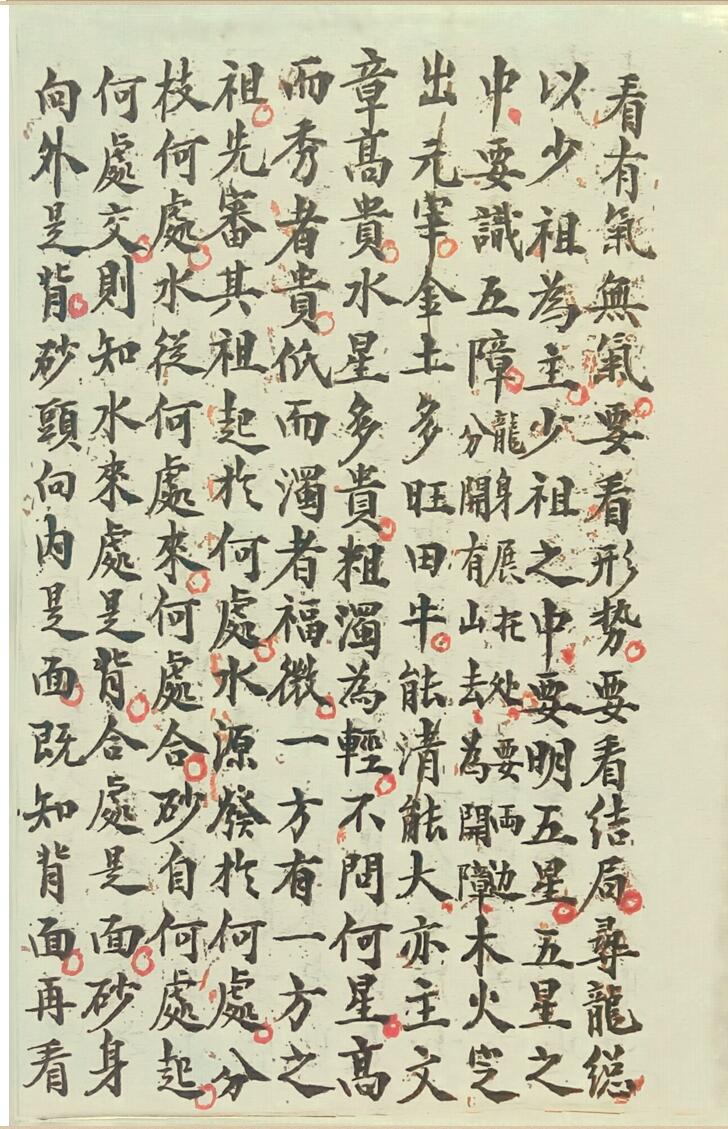 看有氣無氣要看形势要看结局尋龍総
以少祖為主少祖之中要明五星五星之
中要識五障
龍身展托处要両边
分開有山去為開障
木火
出元宰金土多旺田牛能清能大亦主文
章高貴水星多貴粗濁為輕不問何星高
而秀者貴低而濁者福微一方有一方之
祖先審其祖起於何處水源發於何處分
枝何處水從何處來何處合砂自何處起
何處交則知水來處是背合處是面砂身
向外是背砂頭向內是面既知背面再看